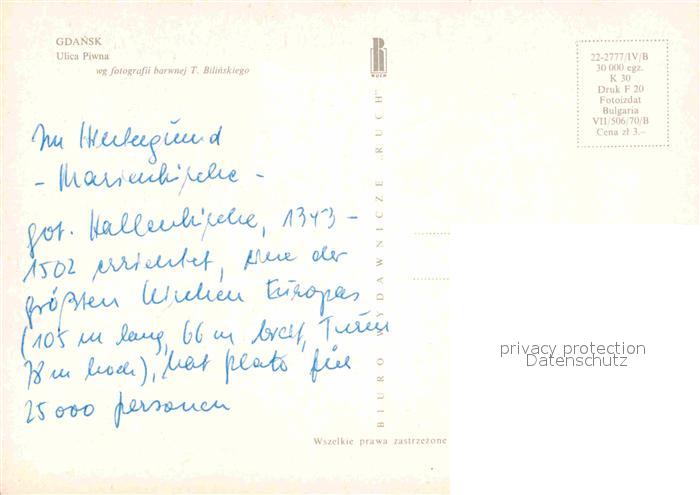 GDAŃSK
Ulica Piwna
wg fotografii barwnej T. Bilińskiego
RUCH
22-2777/IV/B
30 000 egz.
K 30
Druk F 20
Fotoizdat
Bulgaria
VII/506/70/B
Cena zł 3.–
BIURO WYDAWNICZE „RUCH”
Im Hintergrund
- Marienkirche -
got. Hallenkirche, 1343 -
1502 errichtet, eine der
größten Kirchen Europas
(105 m lang, 66 m breit, Turm
78 m hoch), hat platz für
25 000 personen
privacy protection
Datenschutz
Wszelkie prawa zastrzeżone